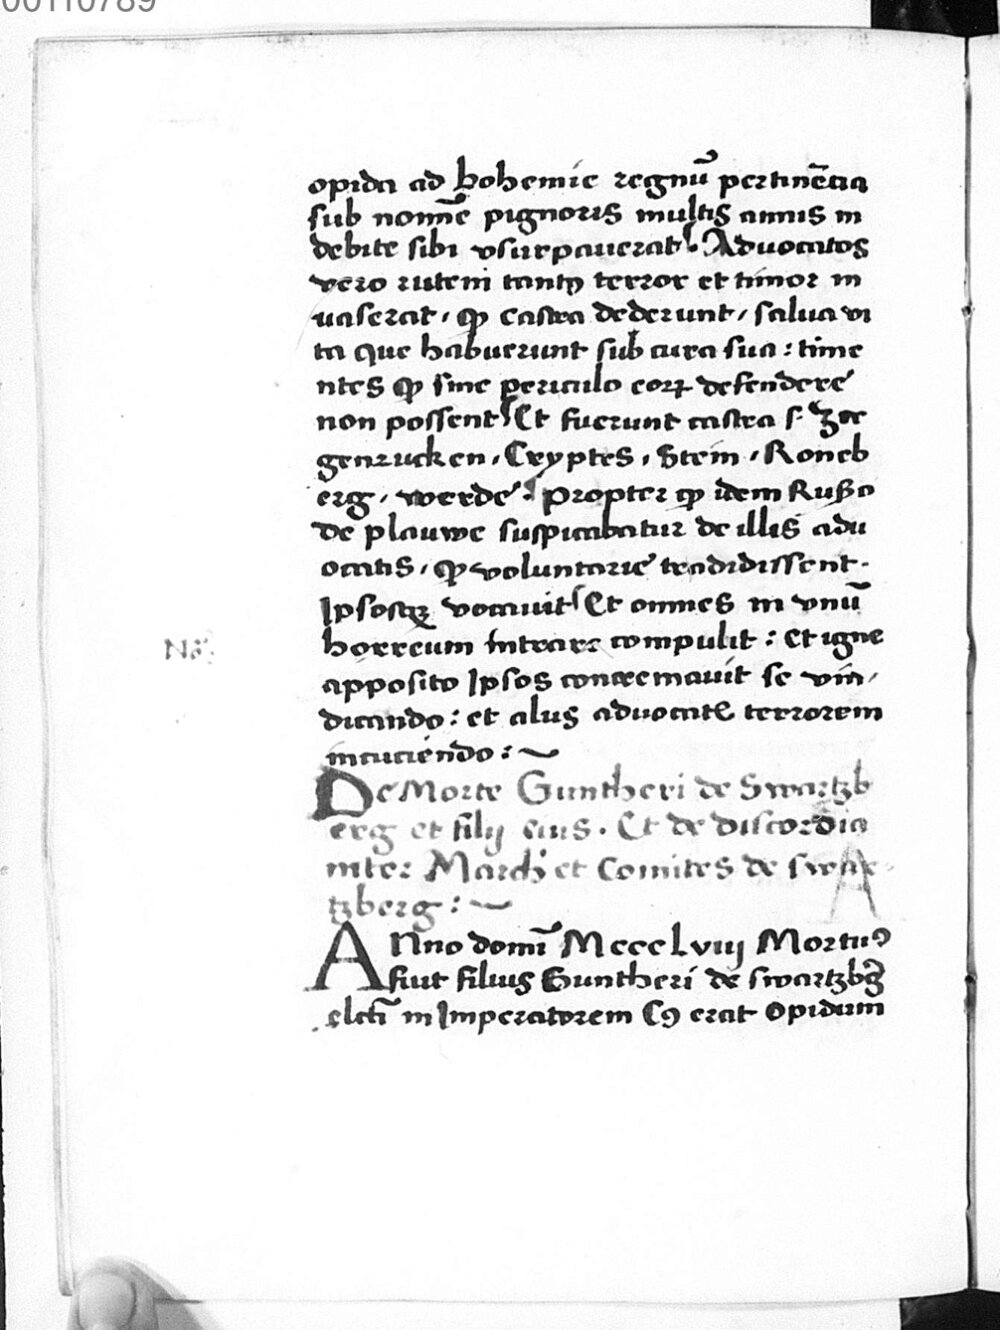 00110789
opida ad bohemie regnū pertinēcia
sub nomīe pignoris multis annis in
debite sibi vsurpauerat. Aduocatos
vero ruteni tantꝰ terror et timor in
uaserat, ꝙ castra dederunt, salua vi
ta que habuerunt sub cura sua : time
ntes ꝙ sine periculo eoꝝ defendere
non possent Et fuerunt castra s. Zee
genrucken, Cryptes, Stein, Roneb
erg, werde. propter ꝙ idem Rußo
de plauwe suspicabatur de illis adu
ocatis, ꝙ voluntarie tradidissent.
Ipsosqꝫ vocauit Et omnes in vnū
horreum intrare compulit : et igne
No:
apposito Ipsos concremauit se vin,
dicando : et alijs aduocatꝭ terrorem
incuciendo :~
De Morte Guntheri de Swartzb
erg et filij eius. Et de discordia
inter March et Comites de swar
tzberg :~
A
Anno domī Mccclviij Mortuꝰ
fuit filius Guntheri de swartzbg
elcti in Imperatorem Cꝰ erat Opidum